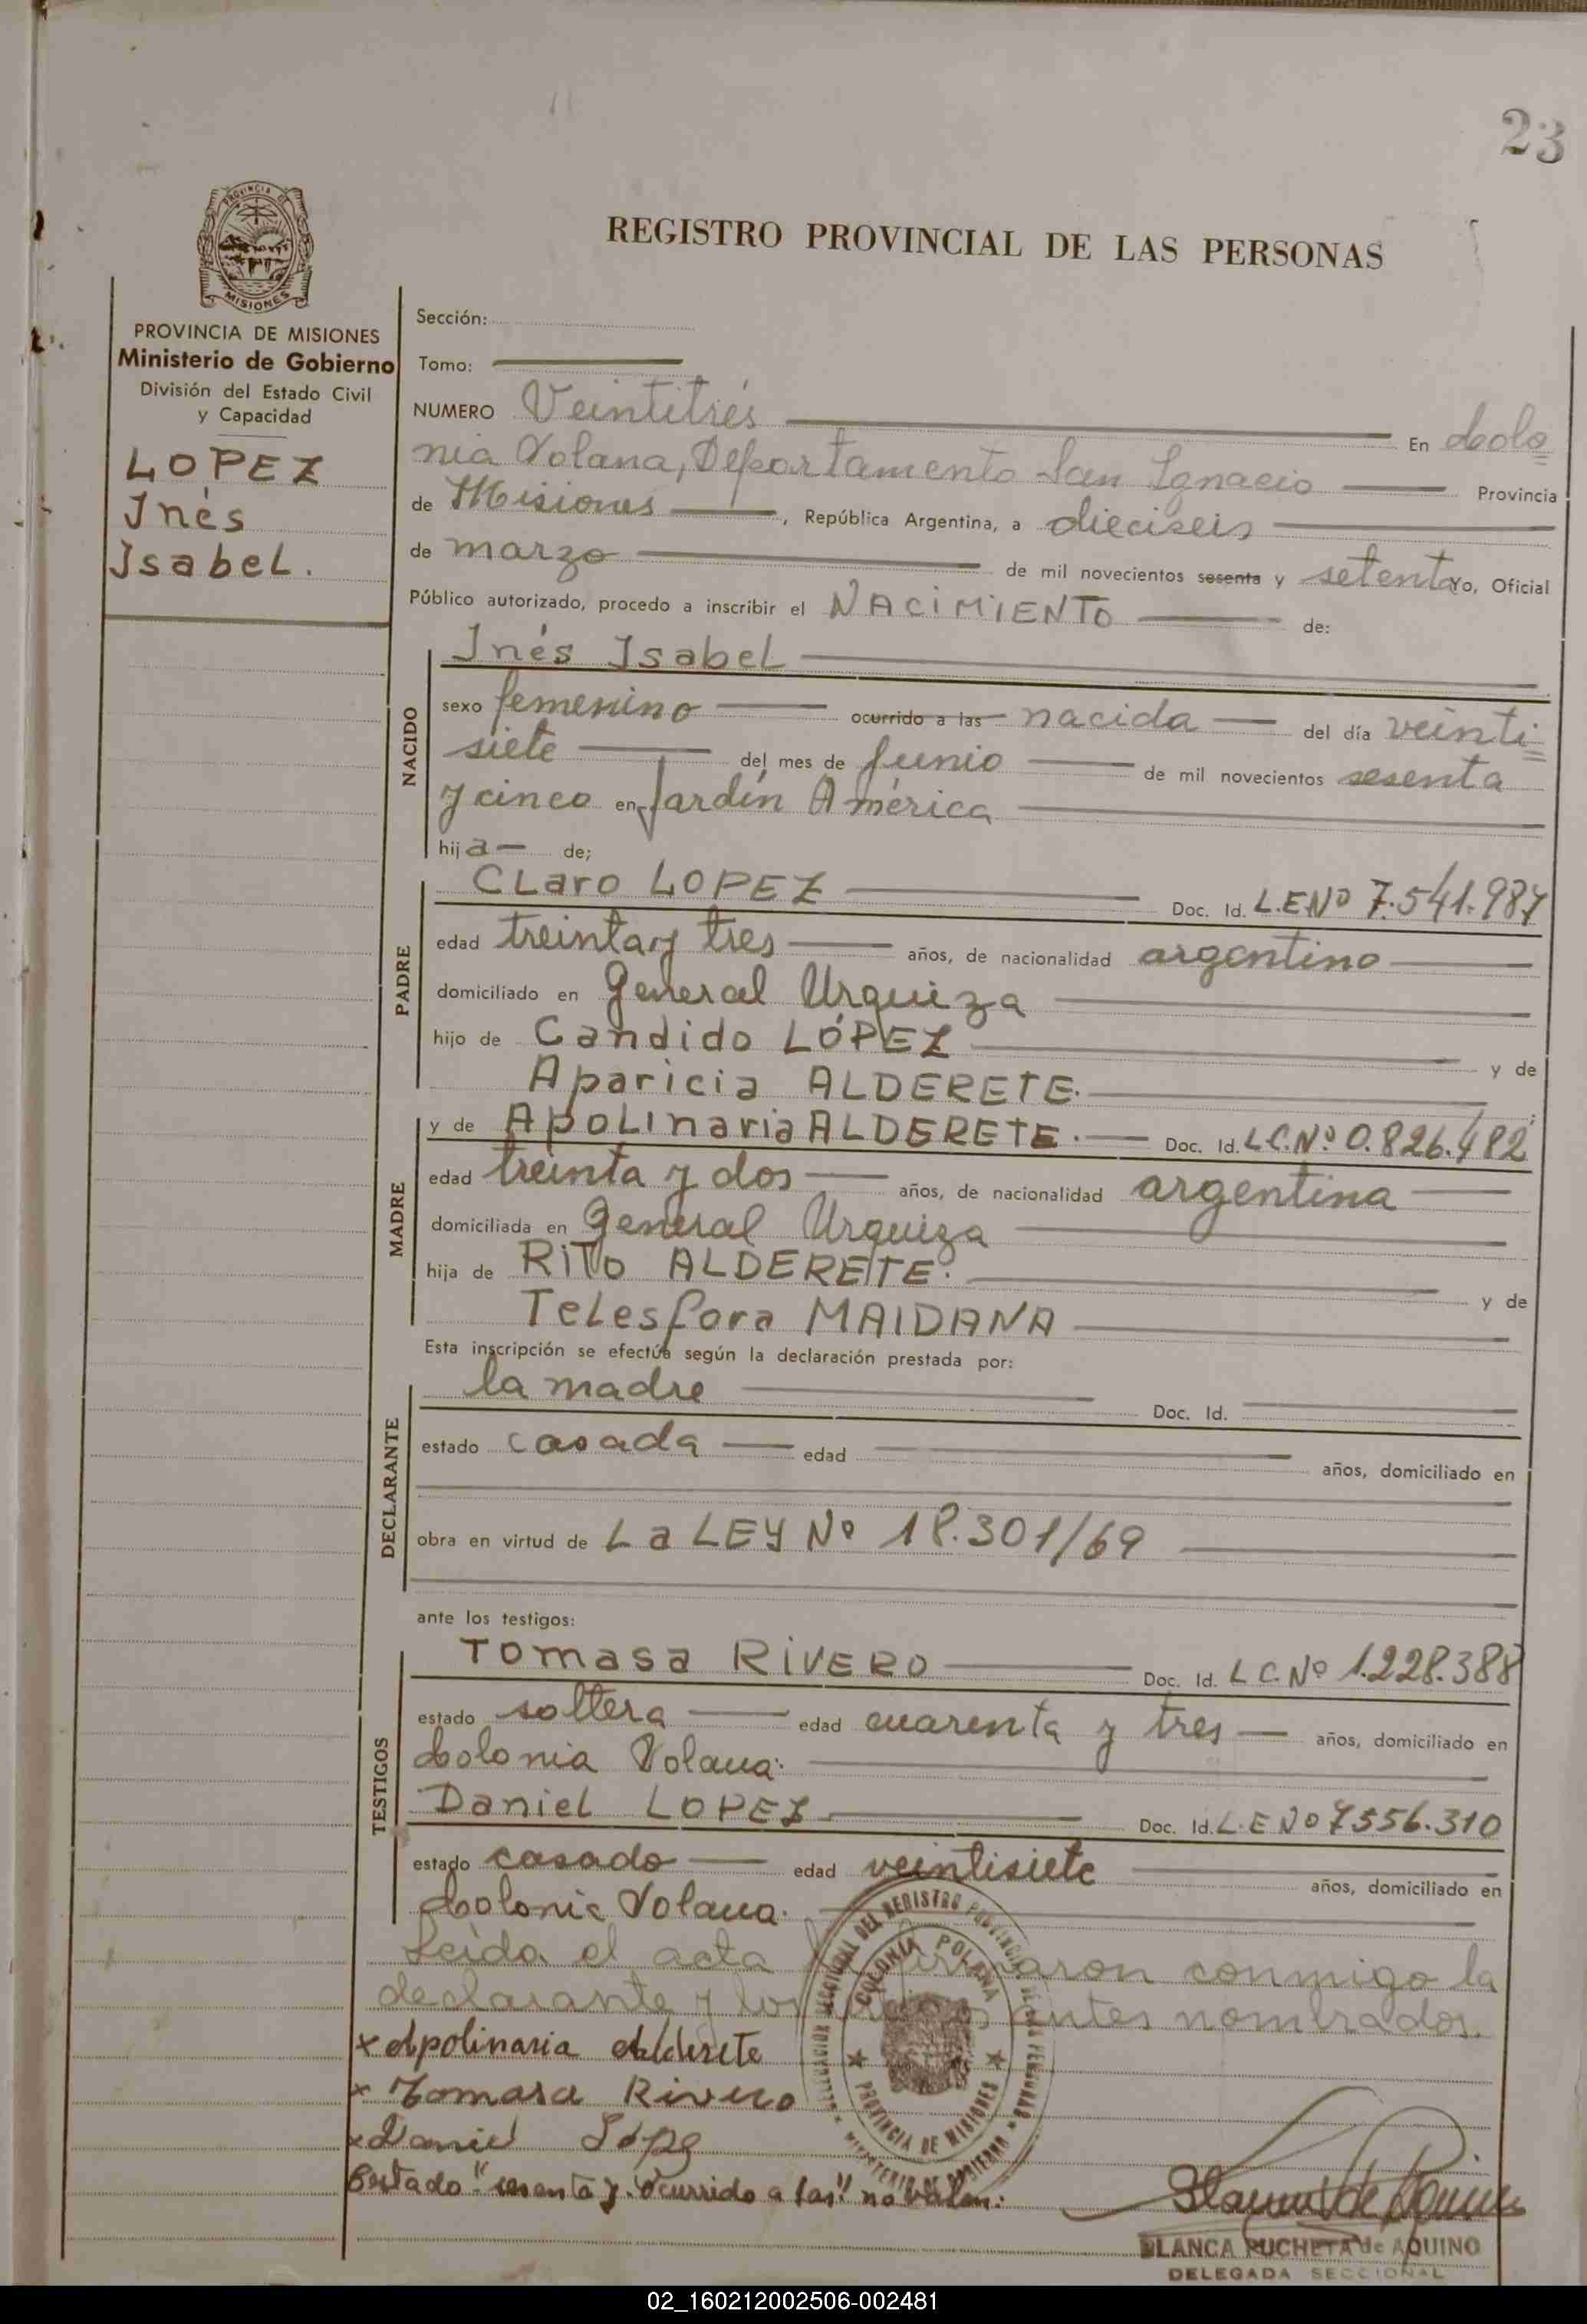 23
PROVINCIA DE
MISIONES
REGISTRO PROVINCIAL DE LAS PERSONAS
PROVINCIA DE MISIONES
Ministerio de Gobierno
División del Estado Civil
y Capacidad
LOPEZ
Inés
Isabel.
Sección:
Tomo:
NUMERO Veintitrés En Colo=
nia Polana, Departamento San Ignacio Provincia
de Misiones, República Argentina, a dieciseis
de marzo de mil novecientos sesenta y setenta Yo, Oficial
Público autorizado, procedo a inscribir el NACIMIENTO de:
NACIDO
Inés Isabel
sexo femenino ocurrido a las nacida del día veinti=
siete del mes de Junio de mil novecientos sesenta
y cinco en Jardín América
hija de;
PADRE
Claro LOPEZ Doc. Id. L.E.Nº 7.541.987
edad treinta y tres años, de nacionalidad argentino
domiciliado en General Urquiza
hijo de Candido LÓPEZ y de
Aparicia ALDERETE.
MADRE
y de Apolinaria ALDERETE. Doc. Id. L.C.Nº 0.826.482
edad treinta y dos años, de nacionalidad argentina
domiciliada en General Urquiza
hija de Rito ALDERETE. y de
Telesfora MAIDANA
Esta inscripción se efectúa según la declaración prestada por:
DECLARANTE
la madre Doc. Id.
estado casada edad años, domiciliado en
obra en virtud de La LEY Nº 18.301/69
ante los testigos:
TESTIGOS
Tomasa RIVERO Doc. Id. L.C.Nº 1.228.388
estado soltera edad cuarenta y tres años, domiciliado en
Colonia Polana.
Daniel LOPEZ Doc. Id. L.E Nº 7556.310
estado casado edad veintisiete años, domiciliado en
Colonia Polana.
Leída el acta la firmaron conmigo la
declarante y los testigos antes nombrados.
x Apolinaria Alderete
x Tomasa Rivero
x Daniel López
Testado "sesenta y. Ocurrido a las" no valen.
DELEGACION SECCIONAL DEL REGISTRO PROVINCIAL DE LAS PERSONAS
MINISTERIO DE GOBIERNO
COLONIA POLANA
PROVINCIA DE MISIONES
BLANCA PUCHETA de AQUINO
DELEGADA SECCIONAL
02_160212002506-002481